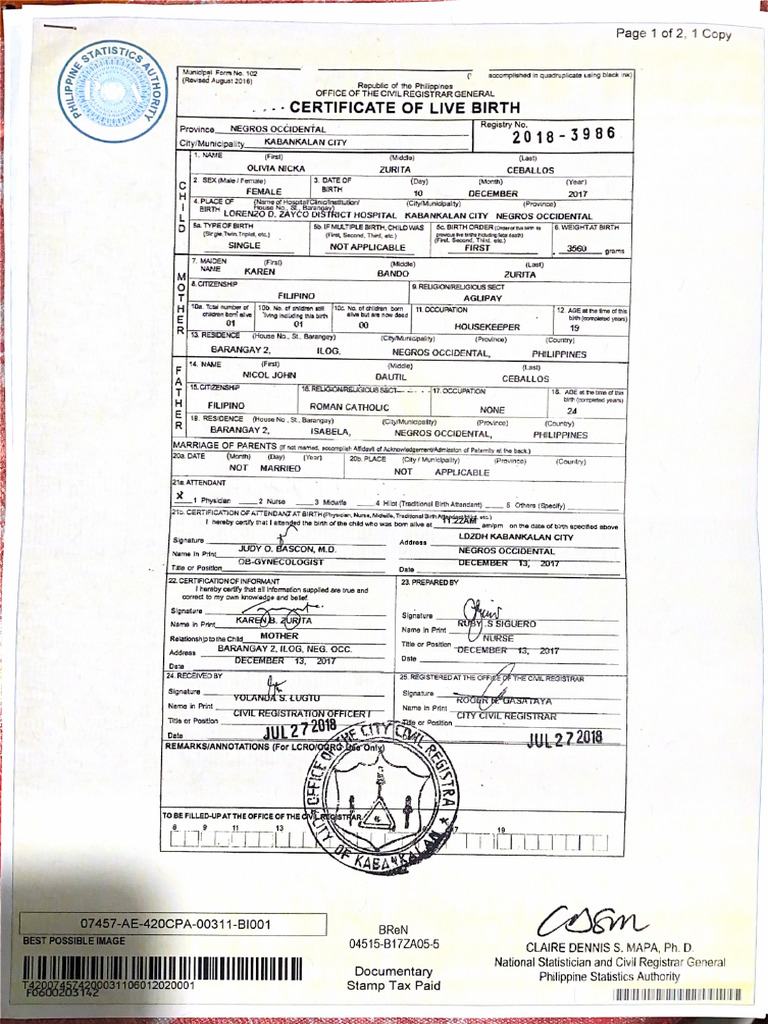 Page 1 of 2, 1 Copy
PHILIPPINE STATISTICS AUTHORITY
PSA
Municipal Form No. 102
(Revised August 2016)
accomplished in quadruplicate using black ink)
Republic of the Philippines
OFFICE OF THE CIVIL REGISTRAR GENERAL
CERTIFICATE OF LIVE BIRTH
Province NEGROS OCCIDENTAL
Registry No.
2018-3986
City/Municipality KABANKALAN CITY
CHILD
1. NAME (First) (Middle) (Last)
OLIVIA NICKA ZURITA CEBALLOS
2. SEX (Male / Female) 3. DATE OF BIRTH (Day) (Month) (Year)
FEMALE 10 DECEMBER 2017
4. PLACE OF BIRTH (Name of Hospital/Clinic/Institution/ House No., St., Barangay) (City/Municipality) (Province)
LORENZO D. ZAYCO DISTRICT HOSPITAL KABANKALAN CITY NEGROS OCCIDENTAL
5a. TYPE OF BIRTH (Single, Twin, Triplet, etc.) 5b. IF MULTIPLE BIRTH, CHILD WAS (First, Second, Third, etc.) 5c. BIRTH ORDER (Order of this birth to previous live births including fetal death) (First, Second, Third, etc.) 6. WEIGHT AT BIRTH
SINGLE NOT APPLICABLE FIRST 3560 grams
MOTHER
7. MAIDEN NAME (First) (Middle) (Last)
KAREN BANDO ZURITA
8. CITIZENSHIP 9. RELIGION/RELIGIOUS SECT
FILIPINO AGLIPAY
10a. Total number of children born alive 10b. No. of children still living including this birth 10c. No. of children born alive but are now dead 11. OCCUPATION 12. AGE at the time of this birth (completed years)
01 01 00 HOUSEKEEPER 19
13. RESIDENCE (House No., St., Barangay) (City/Municipality) (Province) (Country)
BARANGAY 2, ILOG, NEGROS OCCIDENTAL, PHILIPPINES
FATHER
14. NAME (First) (Middle) (Last)
NICOL JOHN DAUTIL CEBALLOS
15. CITIZENSHIP 16. RELIGION/RELIGIOUS SECT 17. OCCUPATION 18. AGE at the time of this birth (completed years)
FILIPINO ROMAN CATHOLIC NONE 24
19. RESIDENCE (House No., St., Barangay) (City/Municipality) (Province) (Country)
BARANGAY 2, ISABELA, NEGROS OCCIDENTAL, PHILIPPINES
MARRIAGE OF PARENTS (If not married, accomplish Affidavit of Acknowledgement/Admission of Paternity at the back.)
20a. DATE (Month) (Day) (Year) 20b. PLACE (City / Municipality) (Province) (Country)
NOT MARRIED NOT APPLICABLE
21a. ATTENDANT
X 1 Physician 2 Nurse 3 Midwife 4 Hilot (Traditional Birth Attendant) 5 Others (Specify)
21b. CERTIFICATION OF ATTENDANT AT BIRTH (Physician, Nurse, Midwife, Traditional Birth Attendant/Hilot, etc.)
I hereby certify that I attended the birth of the child who was born alive at 11:22AM am/pm on the date of birth specified above
Signature Address LDZDH KABANKALAN CITY
Name in Print JUDY O. BASCON, M.D. NEGROS OCCIDENTAL
Title or Position OB-GYNECOLOGIST Date DECEMBER 13, 2017
22. CERTIFICATION OF INFORMANT
I hereby certify that all information supplied are true and correct to my own knowledge and belief.
Signature
Name in Print KAREN B. ZURITA
Relationship to the Child MOTHER
Address BARANGAY 2, ILOG, NEG. OCC.
Date DECEMBER 13, 2017
23. PREPARED BY
Signature
Name in Print RUBY .S SIGUERO
Title or Position NURSE
Date DECEMBER 13, 2017
24. RECEIVED BY
Signature
Name in Print YOLANDA S. LUGTU
Title or Position CIVIL REGISTRATION OFFICER I
Date JUL 27 2018
25. REGISTERED AT THE OFFICE OF THE CIVIL REGISTRAR
Signature
Name in Print ROGER GASATAYA
Title or Position CITY CIVIL REGISTRAR
JUL 27 2018
REMARKS/ANNOTATIONS (For LCRO/OCRG Use Only)
OFFICE OF THE CITY CIVIL REGISTRAR
CITY OF KABANKALAN
TO BE FILLED-UP AT THE OFFICE OF THE CIVIL REGISTRAR
8 9 11 13 19
07457-AE-420CPA-00311-BI001
BEST POSSIBLE IMAGE
T420074574200031106012020001
F0600203142
BReN
04515-B17ZA05-5
Documentary
Stamp Tax Paid
CLAIRE DENNIS S. MAPA, Ph. D.
National Statistician and Civil Registrar General
Philippine Statistics Authority